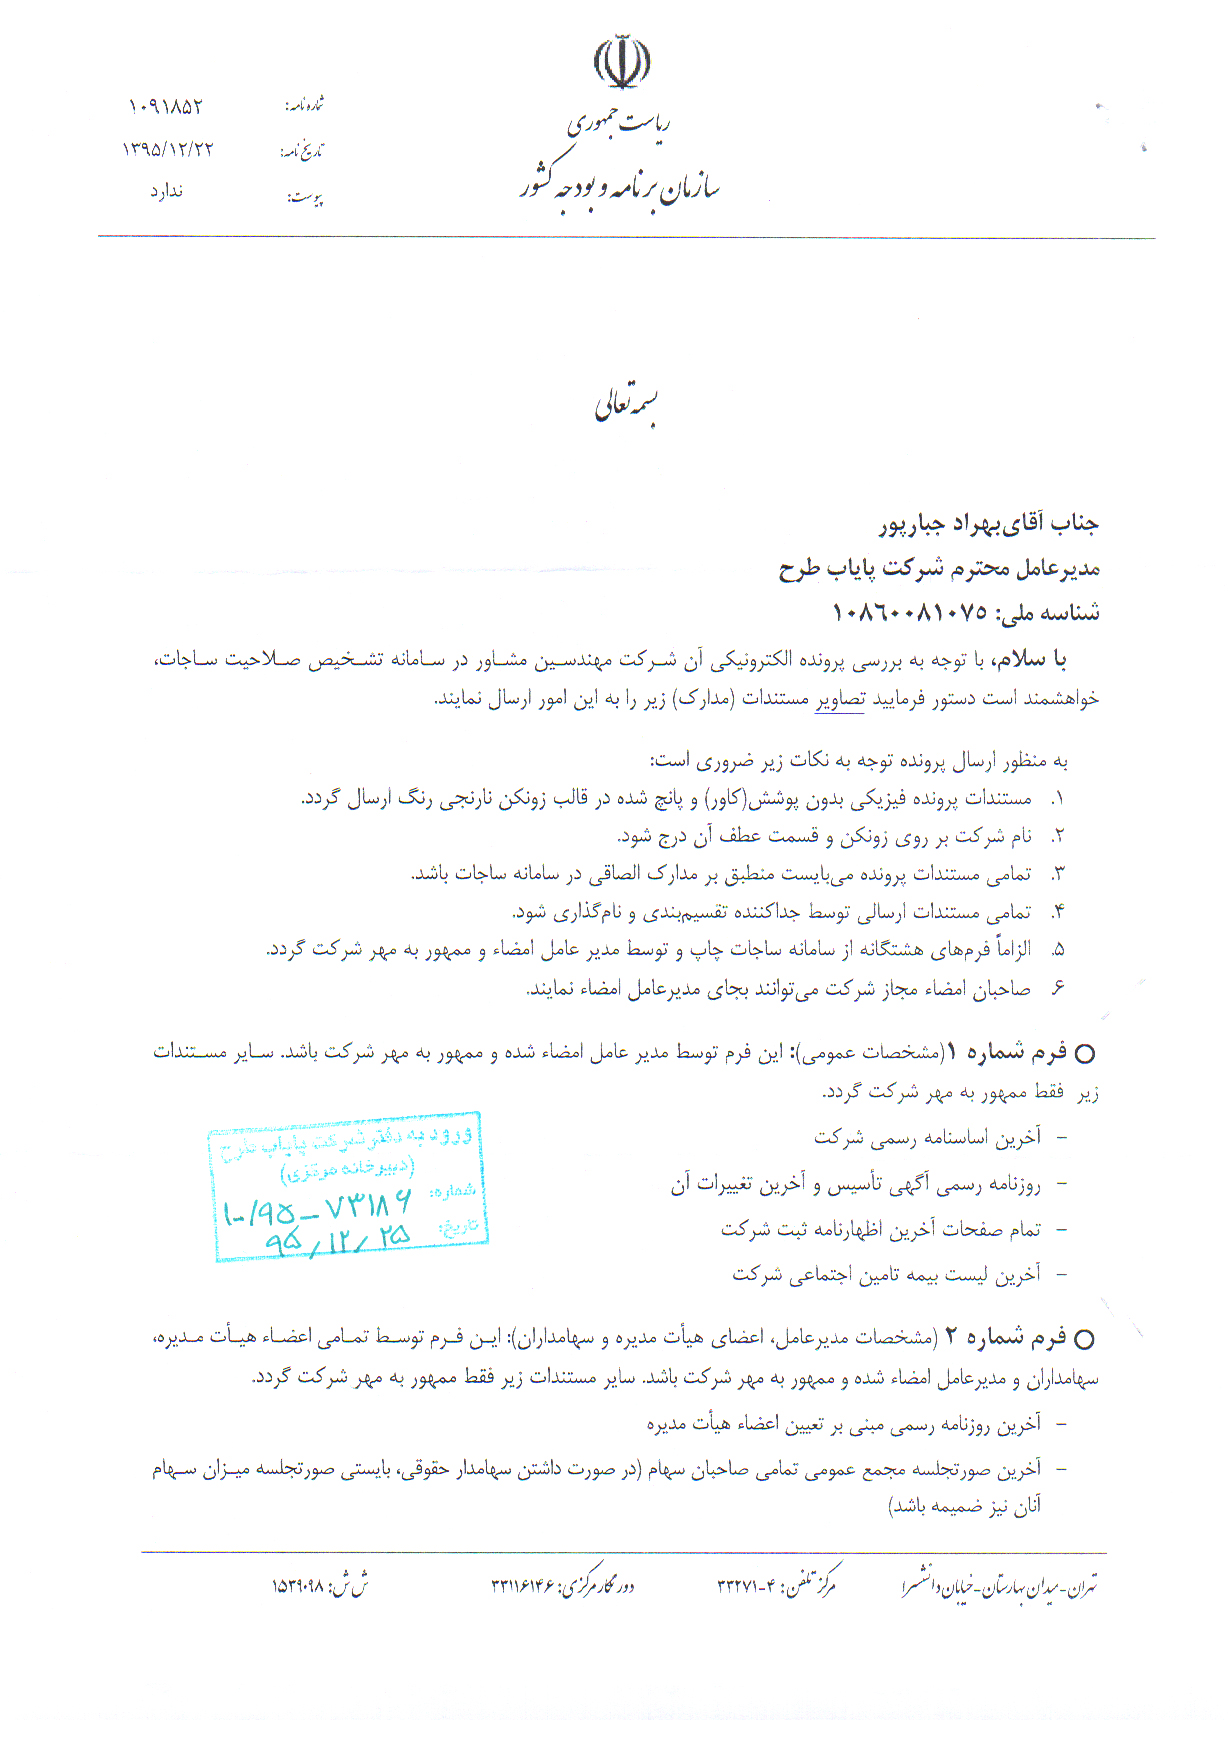 ریاست جمهوری
سازمان برنامه و بودجه کشور
شماره نامه: ۱۰۹۱۸۵۲
تاریخ نامه: ۱۳۹۵/۱۲/۲۲
پیوست: ندارد
بسمه تعالی
جناب آقای بهراد جبارپور
مدیرعامل محترم شرکت پایاب طرح
شناسه ملی: ۱۰۸۶۰۰۸۱۰۷۵
با سلام، با توجه به بررسی پرونده الکترونیکی آن شرکت مهندسین مشاور در سامانه تشخیص صلاحیت ساجات،
خواهشمند است دستور فرمایید تصاویر مستندات (مدارک) زیر را به این امور ارسال نمایند.
به منظور ارسال پرونده توجه به نکات زیر ضروری است:
۱. مستندات پرونده فیزیکی بدون پوشش(کاور) و پانچ شده در قالب زونکن نارنجی رنگ ارسال گردد.
۲. نام شرکت بر روی زونکن و قسمت عطف آن درج شود.
۳. تمامی مستندات پرونده می‌بایست منطبق بر مدارک الصاقی در سامانه ساجات باشد.
۴. تمامی مستندات ارسالی توسط جداکننده تقسیم‌بندی و نام‌گذاری شود.
۵. الزاماً فرم‌های هشتگانه از سامانه ساجات چاپ و توسط مدیر عامل امضاء و ممهور به مهر شرکت گردد.
۶. صاحبان امضاء مجاز شرکت می‌توانند بجای مدیرعامل امضاء نمایند.
O فرم شماره ۱(مشخصات عمومی): این فرم توسط مدیر عامل امضاء شده و ممهور به مهر شرکت باشد. سایر مستندات
زیر فقط ممهور به مهر شرکت گردد.
- آخرین اساسنامه رسمی شرکت
- روزنامه رسمی آگهی تأسیس و آخرین تغییرات آن
- تمام صفحات آخرین اظهارنامه ثبت شرکت
- آخرین لیست بیمه تامین اجتماعی شرکت
ورود به دفتر شرکت پایاب طرح
(دبیرخانه مرکزی)
شماره: ۱۰/۹۵-۷۳۱۸۶
تاریخ: ۹۵/۱۲/۲۵
O فرم شماره ۲ (مشخصات مدیرعامل، اعضای هیأت مدیره و سهامداران): این فرم توسط تمامی اعضاء هیأت مدیره،
سهامداران و مدیرعامل امضاء شده و ممهور به مهر شرکت باشد. سایر مستندات زیر فقط ممهور به مهر شرکت گردد.
- آخرین روزنامه رسمی مبنی بر تعیین اعضاء هیأت مدیره
- آخرین صورتجلسه مجمع عمومی تمامی صاحبان سهام (در صورت داشتن سهامدار حقوقی، بایستی صورتجلسه میزان سهام
آنان نیز ضمیمه باشد)
تهران-میدان بهارستان-خیابان دانشسرا مرکز تلفن: ۴-۳۳۲۷۱ دورنگار مرکزی: ۳۳۱۱۶۱۴۶ ش ش: ۱۵۳۹۰۹۸